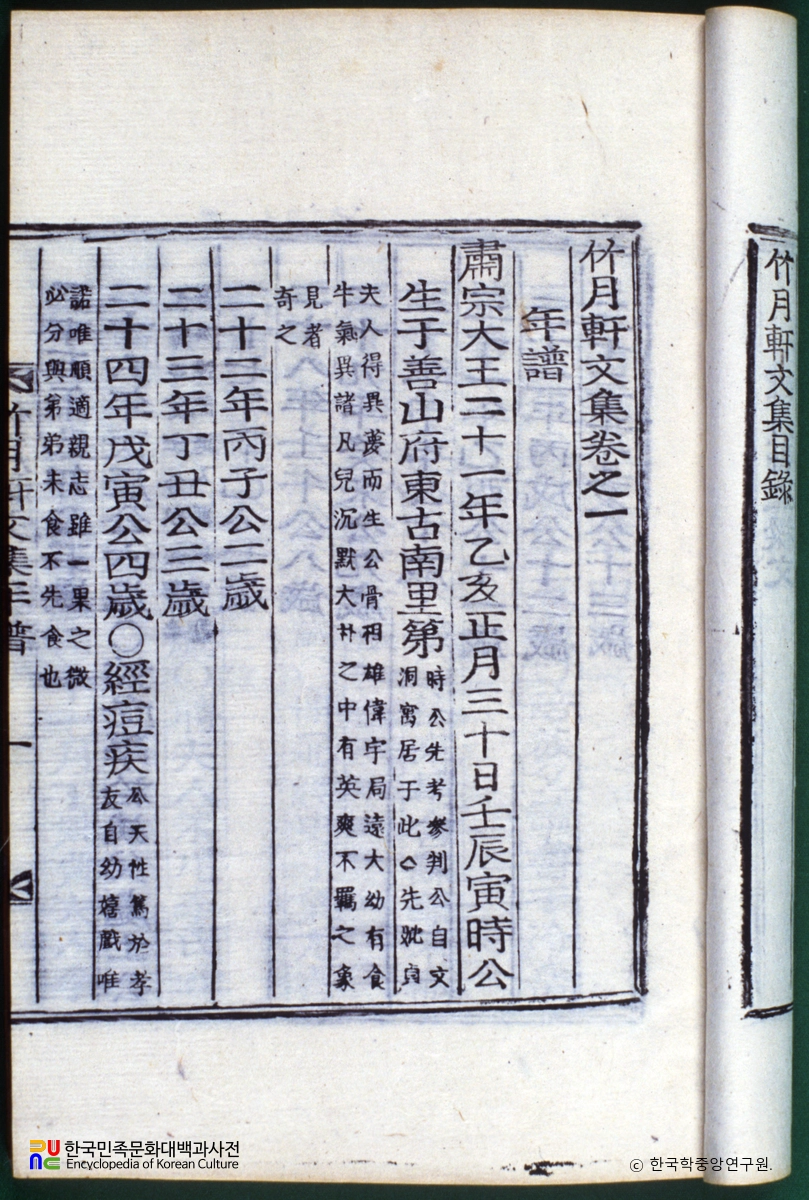 竹月軒文集目錄
竹月軒文集卷之一
年譜
肅宗大王二十一年乙亥正月三十日壬辰寅時公
生于善山府東古南里第
時公先考參判公自文
洞寓居于此○先妣貞
夫人得異夢而生公骨相雄偉宇局遠大幼有食
牛氣異諸凡兒沉默大朴之中有英爽不羈之象
見者
奇之
二十二年丙子公二歲
二十三年丁丑公三歲
二十四年戊寅公四歲○經痘疾
公天性篤於孝
友自幼嬉戲唯
諾唯順適親志雖一果之微
必分與弟弟未食不先食也
竹月軒文集年譜 一
한국민족문화대백과사전
Encyclopedia of Korean Culture
© 한국학중앙연구원.